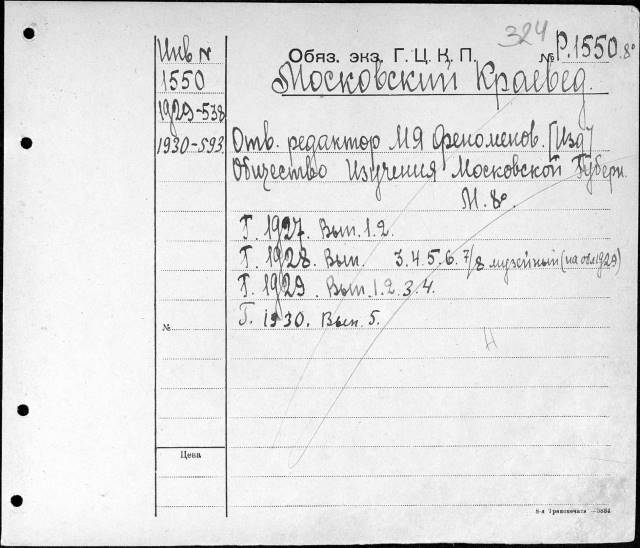 324
Инв N
1550
1929-538
1930-593
Обяз. экз. Г. Ц. К. П. № Р.1550. 8°
Московский Краевед.
Отв. редактор МЯ Феноменов. [Изд]
Общество Изучения Московской Губерн.
М. 8°.
Г. 1927. Вып. 1. 2.
Г. 1928. Вып. 3. 4. 5. 6. 7/8 музейный (на обл 1929)
Г. 1929. Вып. 1. 2. 3. 4.
Г. 1930. Вып. 5.
№
Н
Цена
8-я Транспечати —3884